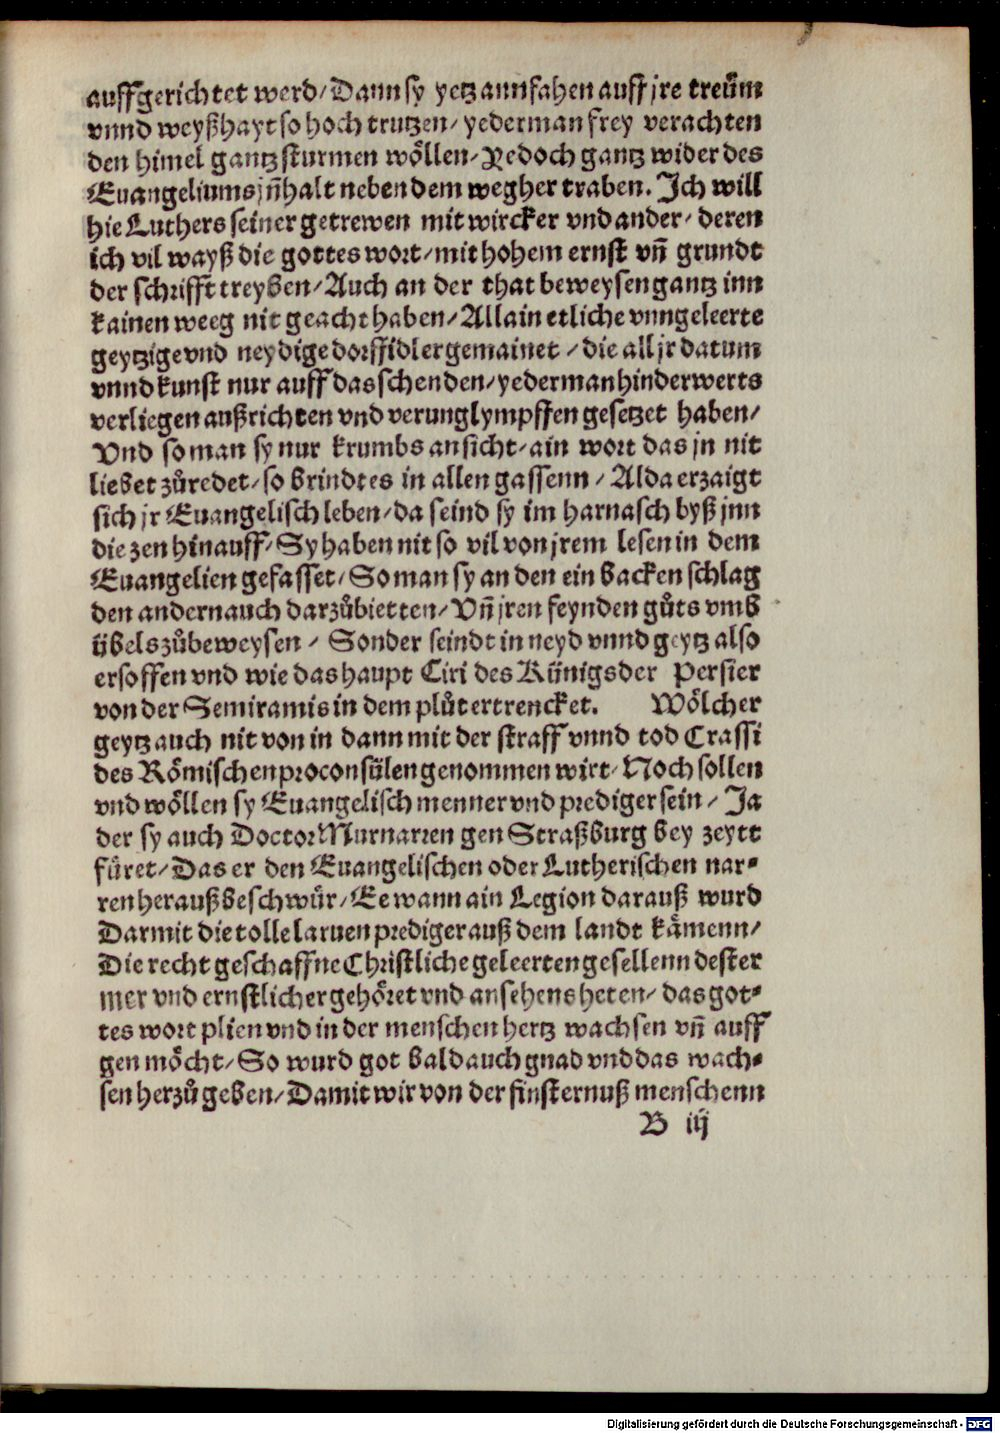 auffgerichtet werd/ Dann sy yetz annfahen auff jre treüm
vnnd weyßhayt so hoch trutzen/ yederman frey verachten
den himel gantz sturmen wöllen/ Yedoch gantz wider des
Euangeliums jñhalt neben dem weg her traben. Ich will
hie Luthers seiner getrewen mitwircker vnd ander/ deren
ich vil wayß die gottes wort/ mit hohem ernst vñ grundt
der schrifft treyben/ Auch an der that beweysen gantz inn
kainen weeg nit geacht haben/ Allain etliche vnngeleerte
geytzige vnd neydige dorffidler gemainet/ die all jr datum
vnnd kunst nur auff das schenden/ yederman hinderwerts
verliegen außrichten vnd verunglympffen gesetzet haben/
Vnd so man sy nur krumbs ansicht/ ain wort das jn nit
liebet zůredet/ so brindt es in allen gassenn/ Alda erzaigt
sich jr Euangelisch leben/ da seind sy im harnasch byß jnn
die zen hinauff/ Sy haben nit so vil von jrem lesen in dem
Euangelien gefasset/ So man sy an den ein backen schlag
den andern auch darzůbietten/ Vñ jren feynden gůts vmb
übels zůbeweysen/ Sonder seindt in neyd vnnd geytz also
ersoffen vnd wie das haupt Ciri des Künigs der Persier
von der Semiramis in dem plůt ertrencket. Wölcher
geytz auch nit von in dann mit der straff vnnd tod Crassi
des Römischen proconsülen genommen wirt/ Noch sollen
vnd wöllen sy Euangelisch menner vnd prediger sein/ Ja
der sy auch Doctor Murnarren gen Straßburg bey zeytt
füret/ Das er den Euangelischen oder Lutherischen nar⸗
ren heraußbeschwür/ Ee wann ain Legion darauß wurd
Darmit die tolle laruen prediger auß dem landt kämenn/
Die recht geschaffne Christliche geleerten gesellenn dester
mer vnd ernstlicher gehöret vnd ansehens heten/ das got⸗
tes wort plien vnd in der menschen hertz wachsen vñ auff
gen möcht/ So wurd got bald auch gnad vnd das wach⸗
sen herzů geben/ Damit wir von der finsternuß menschenn
B iij
Digitalisierung gefördert durch die Deutsche Forschungsgemeinschaft - DFG